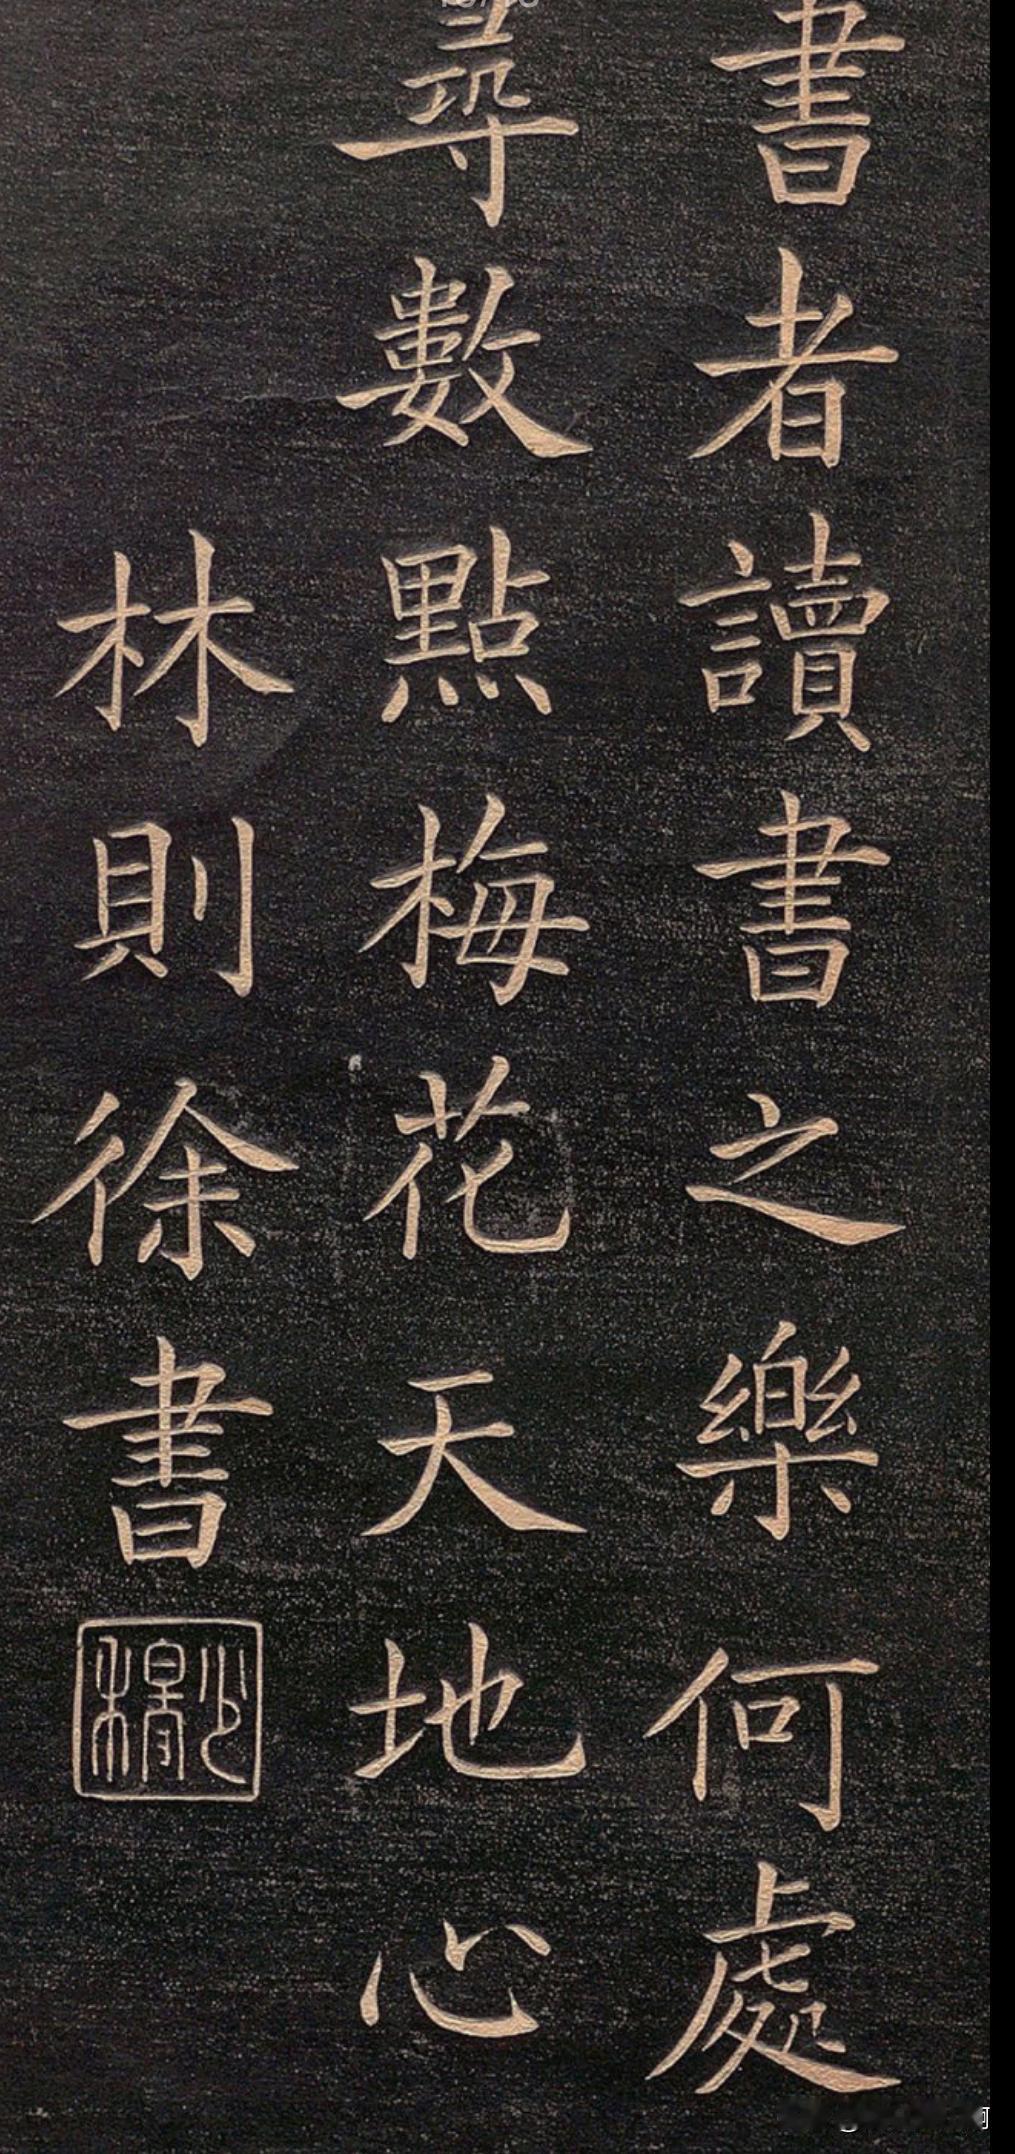 書者讀書之樂何處
尋數點梅花天地心
林則徐書
少穆